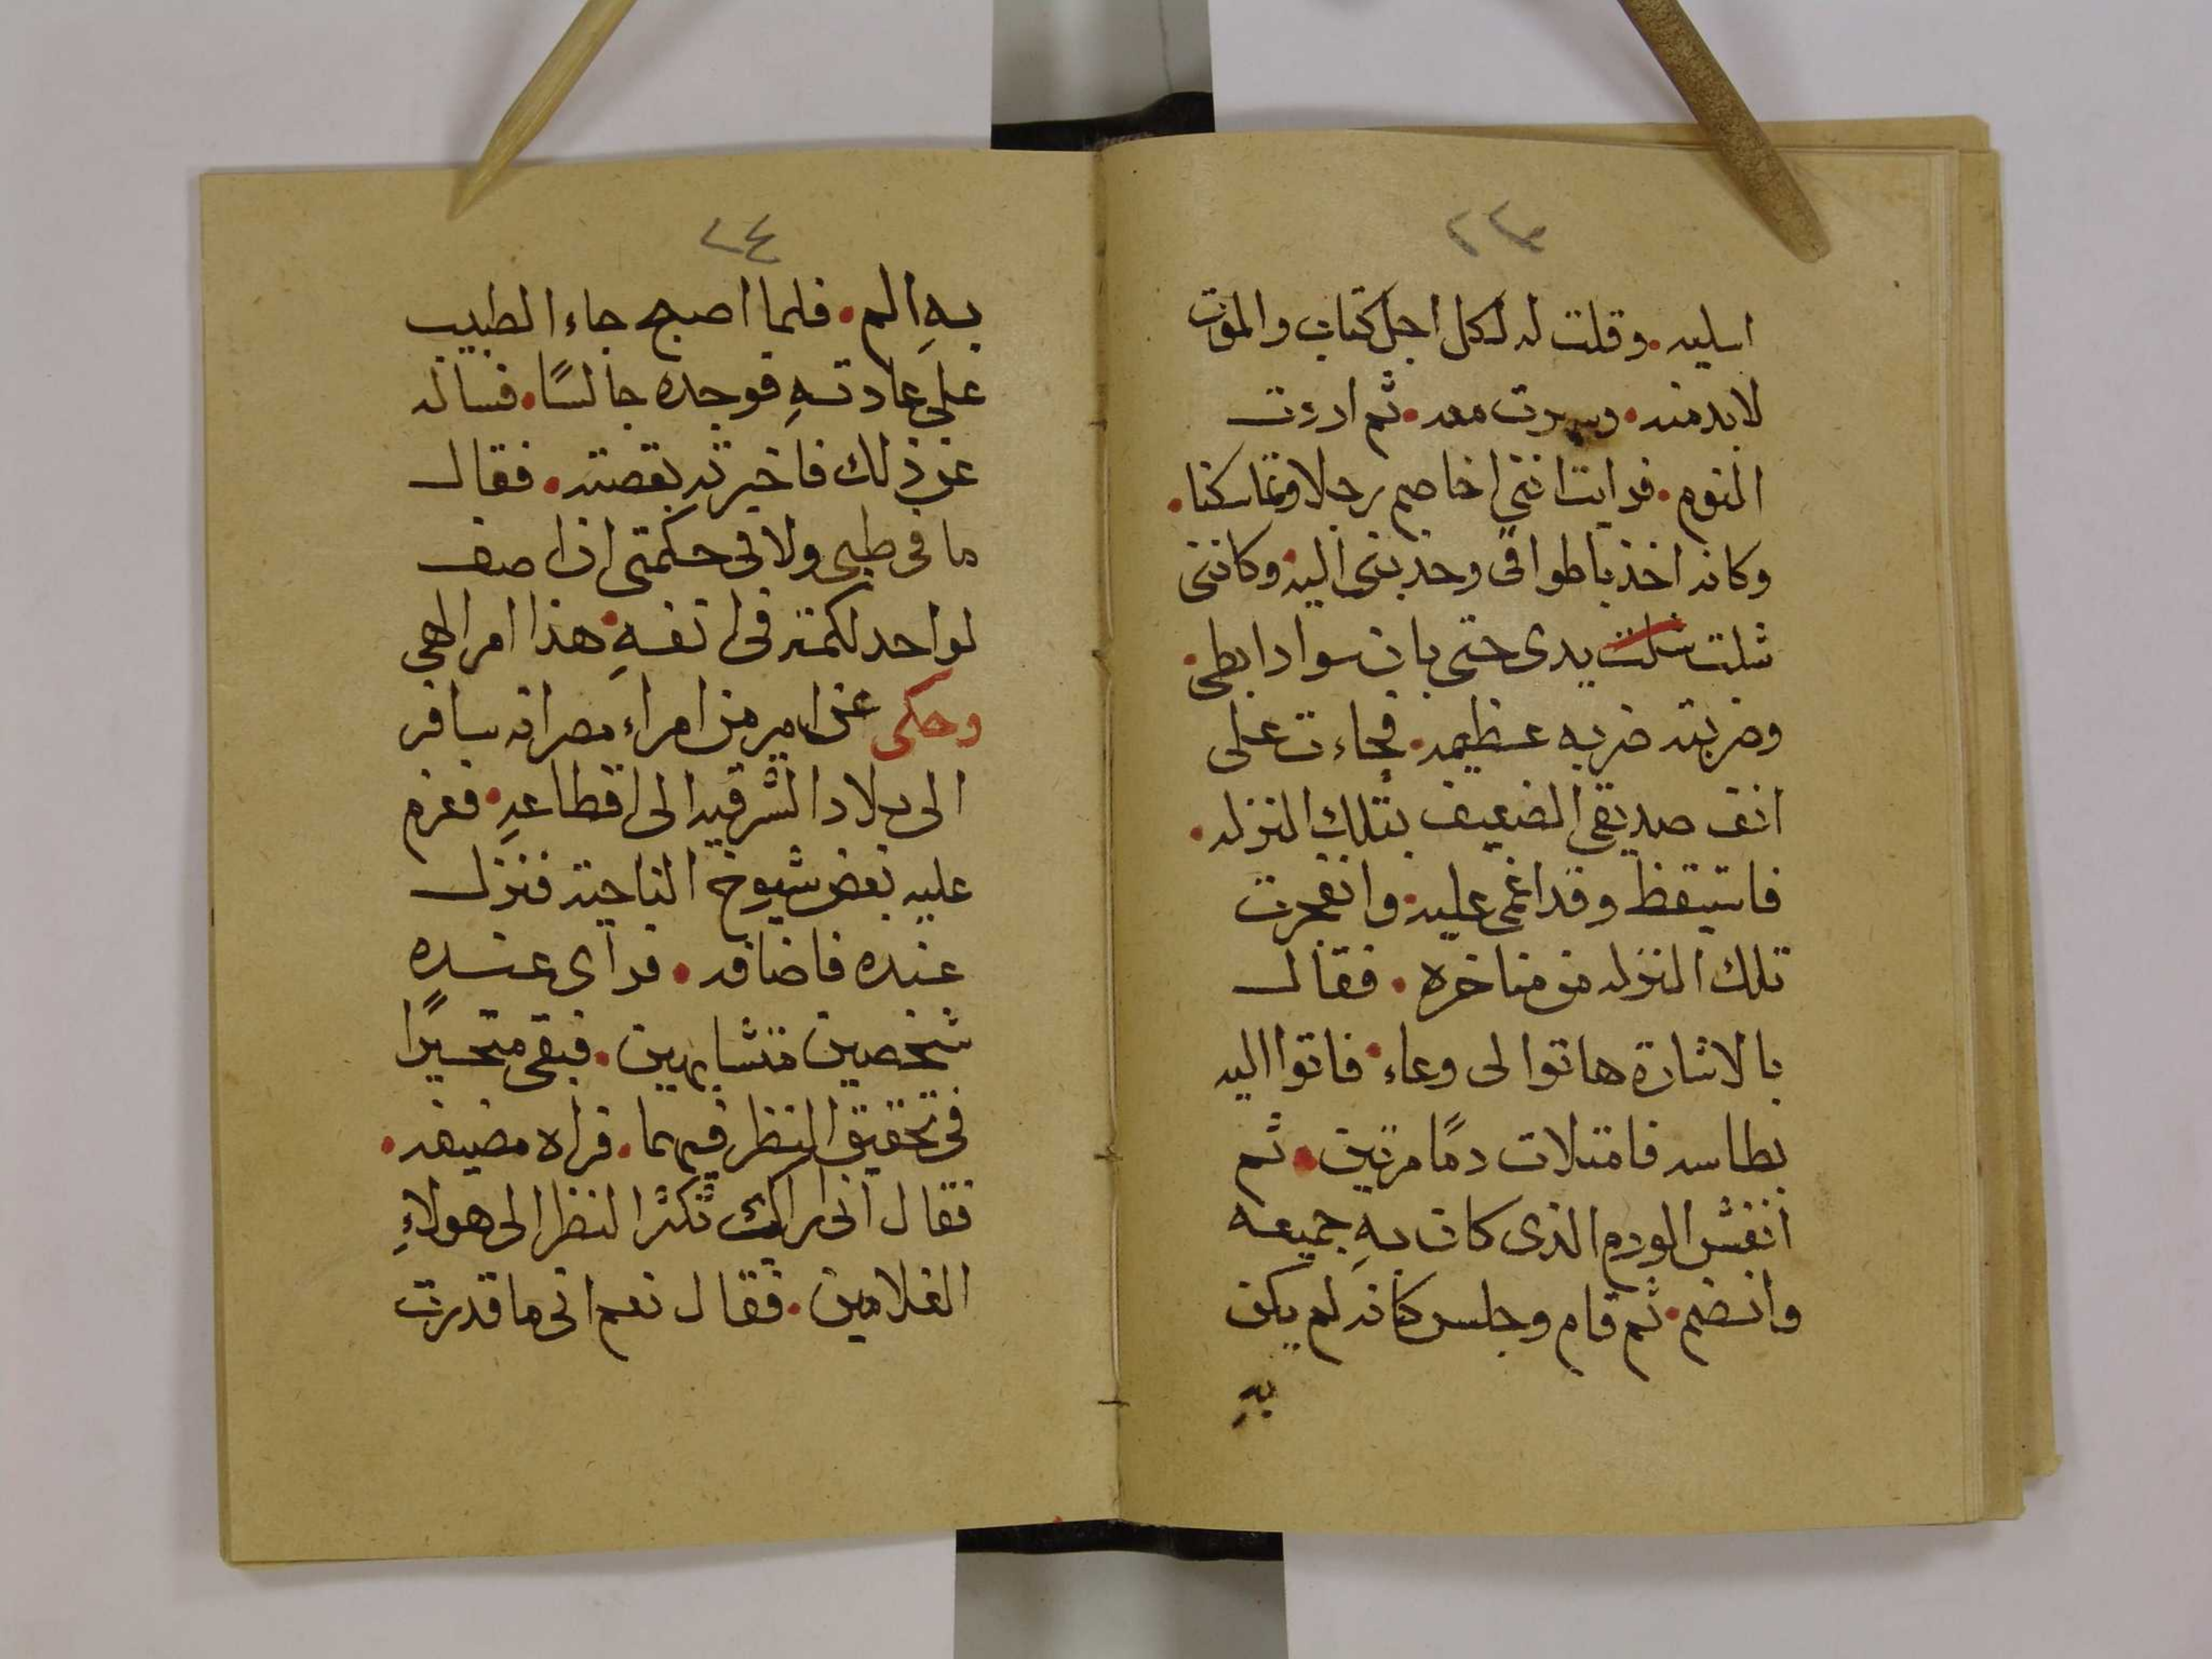 ٢٣
اسليه. وقلت له لكل اجل كتاب والموت
لابد منه. وسهرت معه. ثم اردت
النوم. فرايت انني اخاصم رجلا وتماسكنا.
وكانه اخذ باطواقى وجذبنى اليه. وكاننى
شلت شلت يدى حتى بان سواد ابطى.
وضربته ضربه عظيمه. فجاءت على
انف صديقى الضعيف بتلك النزله.
فاستيقظ وقد اغمى عليه. وانفجرت
تلك النزله من مناخره. فقال
بالاشارة هاتوا لى وعاء. فاتوا اليه
بطاسه فامتلات دمًا مرتين. ثم
انفش الورم الذى كان بهِ جميعه
وانضم. ثم قام وجلس كانه لم يكن
بهِ
٢٤
بهِ الم. فلما اصبح جاء الطبيب
على عادتهِ فوجده جالسًا. فساله
عن ذلك فاخبرته بقصته. فقال
ما فى طبى ولا فى حكمتى ان اصف
لواحد لكمته فى انفهِ. هذا امر الهى
وحكى عن امير من امراء مصر انه سافر
الى بلاد الشرقيه الى اقطاعهِ. فعزم
عليه بعض شيوخ الناحية فنزل
عنده فاضافه. فراى عنده
شخصين متشابهين. فبقى متحيرًا
فى تحقيق النظر فيهما. فراه مضيفه.
فقال انى اراك تكثر النظر الى هولاءِ
الغلامين. فقال نعم انى ما قدرت